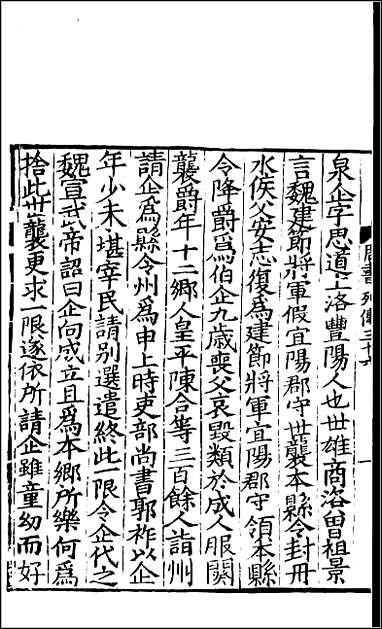 周書列傳三十六
泉企字思道上洛豐陽人也世雄商洛曽祖景
言魏建節將軍假宜陽郡守世襲本縣令封丹
水侯父安志復爲建節將軍宜陽郡守領本縣
令降爵爲伯企九歲喪父哀毀類於成人服闋
襲爵年十二鄉人皇平陳合等三百餘人詣州
請企爲縣令州爲申上時吏部尚書郭祚以企
年少未堪宰民請别選遣終此一限令企代之
魏宣武帝詔曰企向成立且爲本鄉所樂何爲
捨此世襲更求一限遂依所請企雖童㓜而好